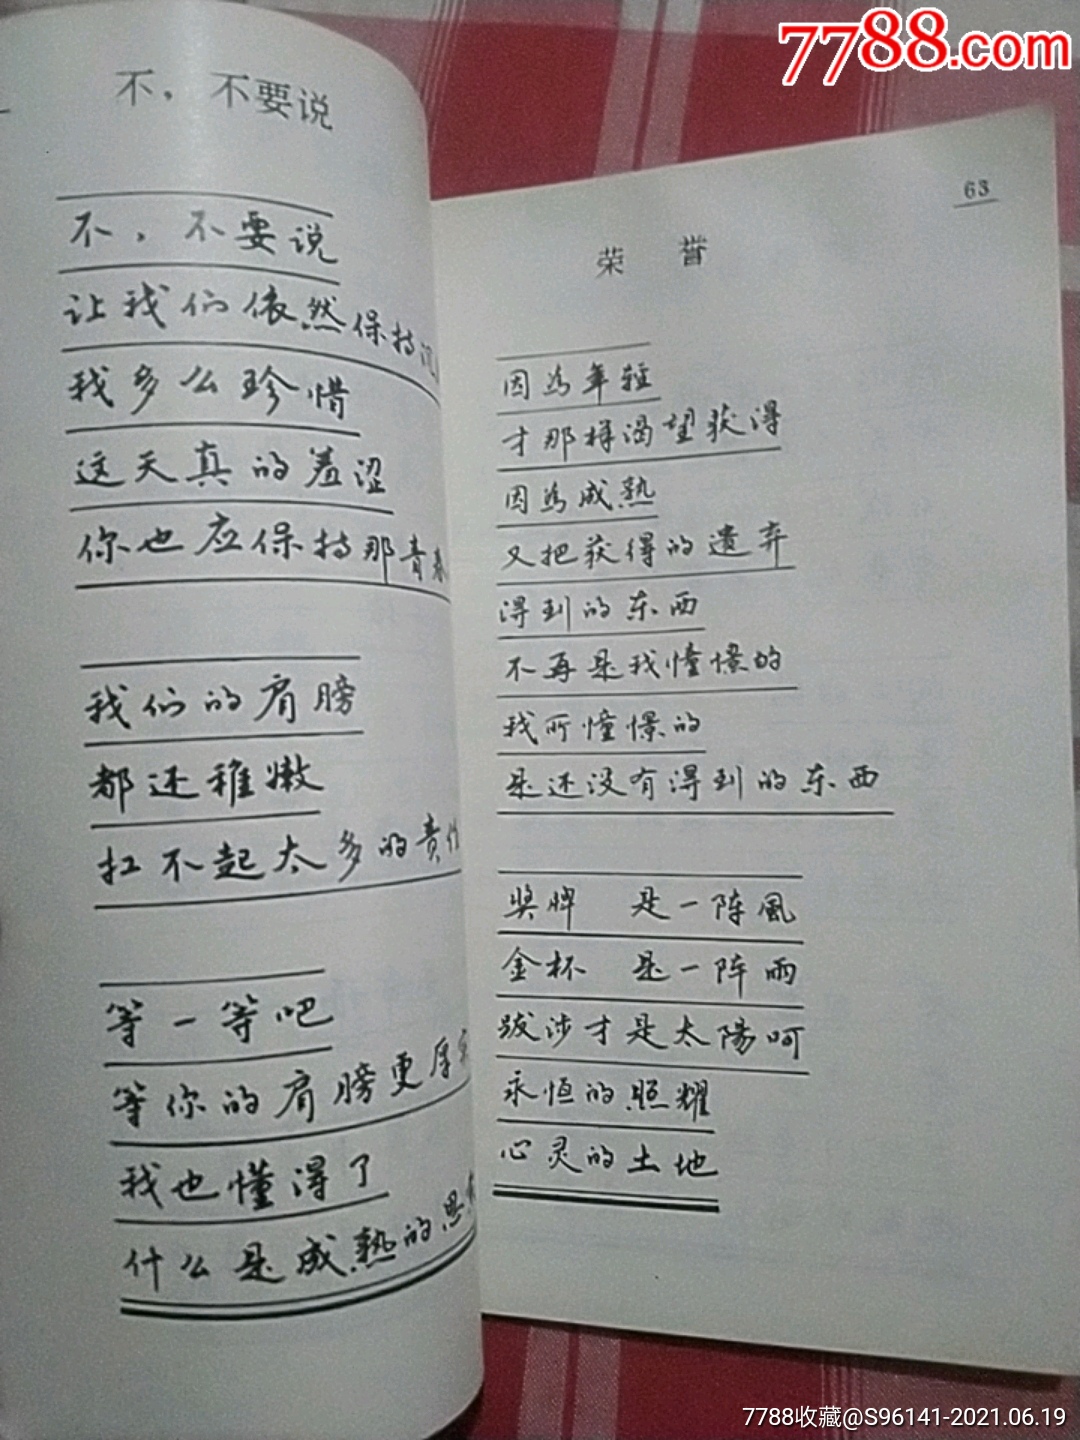 7788.com
不，不要说
不，不要说
让我们依然保持沉
我多么珍惜
这天真的羞涩
你也应保持那青春
我们的肩膀
都还稚嫩
扛不起太多的责任
等一等吧
等你的肩膀更厚实
我也懂得了
什么是成熟的思
63
荣誉
因为年轻
才那样渴望获得
因为成熟
又把获得的遗弃
得到的东西
不再是我憧憬的
我所憧憬的
是还没有得到的东西
奖牌 是一阵風
金杯 是一阵雨
跋涉才是太陽呵
永恒的照耀
心灵的土地
7788收藏@S96141-2021.06.19